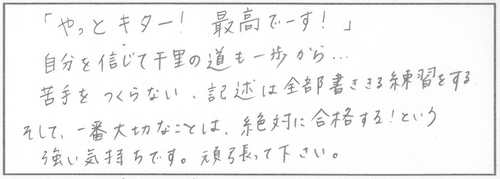 「やっとキター！ 最高でーす！」
自分を信じて千里の道も一歩から…
苦手をつくらない、記述は全部書ききる練習をする
そして、一番大切なことは、絶対に合格する！という
強い気持ちです。頑張って下さい。